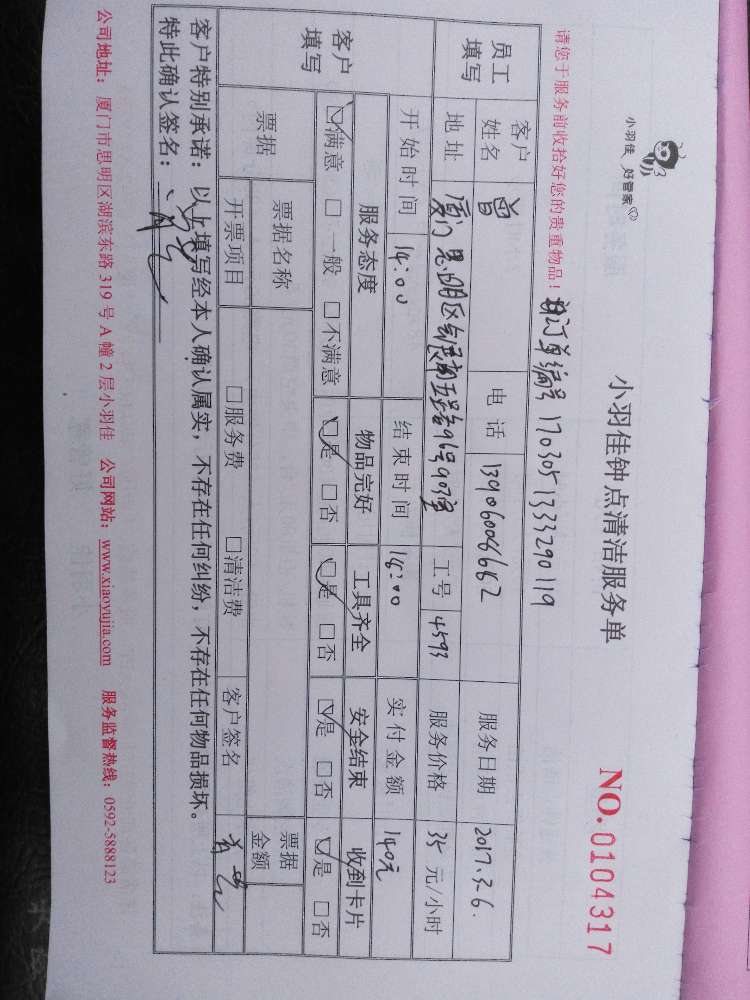 小羽佳 好管家
小羽佳钟点清洁服务单
NO.0104317
请您于服务前收拾好您的贵重物品！
订单编号 170305133290119
员工填写
客户姓名 曾 电话 13906006662 服务日期 2017.3.6.
地址 厦门思明区 96号903室 工号 4593 服务价格 35 元/小时
开始时间 14:00 结束时间 18:00 实付金额 140元
客户填写
服务态度 物品完好 工具齐全 安全结束 收到卡片
☑满意 □一般 □不满意 ☑是 □否 ☑是 □否 ☑是 □否 ☑是 □否
票据 票据名称 票据金额
开票项目 □服务费 □清洁费 客户签名
客户特别承诺：以上填写经本人确认属实，不存在任何纠纷，不存在任何物品损坏。
特此确认签名：
公司地址：厦门市思明区湖滨东路 319 号 A 幢 2 层小羽佳 公司网站：www.xiaoyujia.com 服务监督热线：0592-5888123